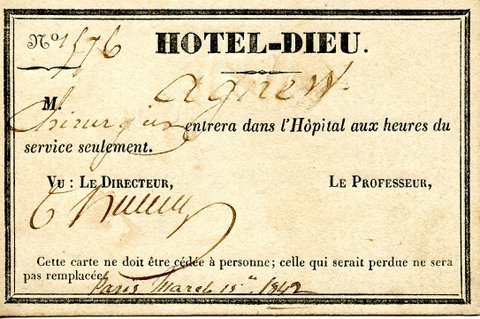 No 1576
HOTEL-DIEU.
M. Agnew.
entrera dans l'Hôpital aux heures du
service seulement.
Vu : Le Directeur,
Le Professeur,
Cette carte ne doit être cédée à personne; celle qui serait perdue ne sera
pas remplacée.
Paris March 15th 1842